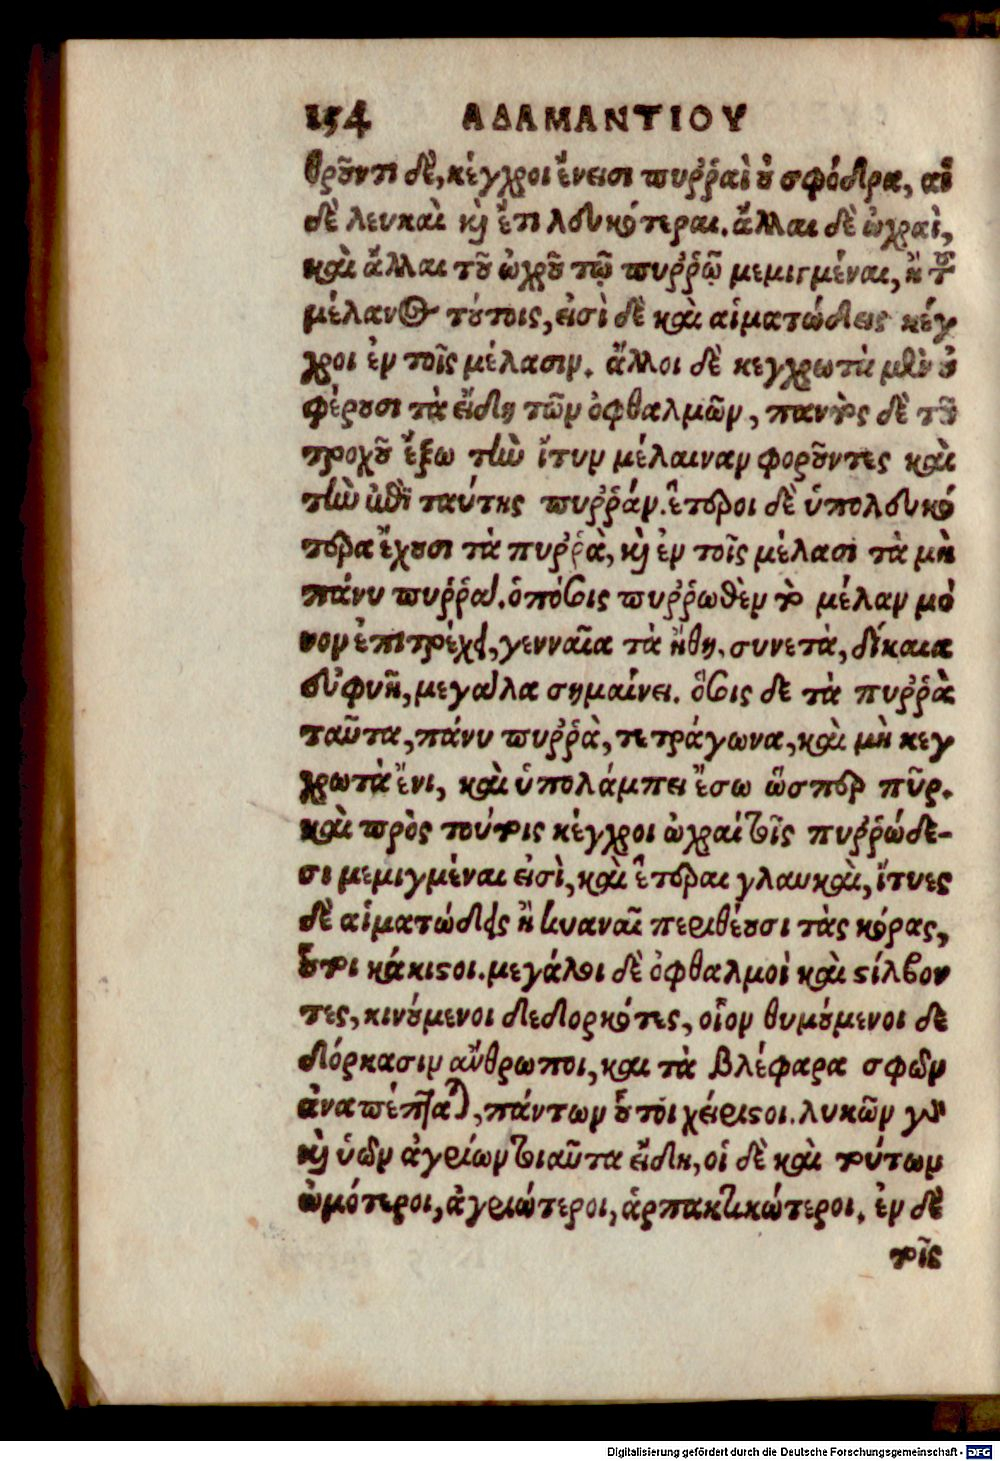 154 ΑΔΑΜΑΝΤΙΟΥ
θροῦντι δὲ, κέγχροι ἔνεισι πυῤῥαὶ οὐ σφόδρα, αἱ
δὲ λευκαὶ καὶ ἔτι λευκότεραι. ἄλλαι δὲ ὠχραὶ,
καὶ ἄλλαι τοῦ ὠχροῦ τῷ πυῤῥῷ μεμιγμέναι, ἢ τοῦ
μέλανος τούτοις, εἰσὶ δὲ καὶ αἱματώδεις κέγ
χροι ἐν τοῖς μέλασιν. ἄλλοι δὲ κεγχρωτὰ μὲν οὐ
φέρουσι τὰ εἴδη τῶν ὀφθαλμῶν, παντὸς δὲ τοῦ
τροχοῦ ἔξω τὴν ἴτυν μέλαιναν φοροῦντες καὶ
τὴν ἐπὶ ταύτης πυῤῥάν. ἕτεροι δὲ ὑπολευκό
τερα ἔχουσι τὰ πυῤῥὰ, καὶ ἐν τοῖς μέλασι τὰ μὴ
πάνυ πυῤῥά. ὁπόσοις πυῤῥωθὲν τὸ μέλαν μό
νον ἐπιτρέχει, γενναῖα τὰ ἤθη, συνετὰ, δίκαια
εὐφυῆ, μεγάλα σημαίνει. ὅσοις δε τὰ πυῤῥὰ
ταῦτα, πάνυ πυῤῥὰ, τετράγωνα, καὶ μὴ κεγ
χρωτὰ ἔνι, καὶ ὑπολάμπει ἔσω ὥσπερ πῦρ.
καὶ πρὸς τούτοις κέγχροι ὠχραί τοῖς πυῤῥώδε-
σι μεμιγμέναι εἰσὶ, καὶ ἕτεραι γλαυκαὶ, ἴτυες
δὲ αἱματώδεις ἢ κυαναῖ περιθέουσι τὰς κόρας,
οὗτοι κάκιστοι. μεγάλοι δὲ ὀφθαλμοὶ καὶ στίλβον
τες, κινούμενοι δεδορκότες, οἷον θυμούμενοι δε
δόρκασιν ἄνθρωποι, και τὰ βλέφαρα σφῶν
ἀναπέπταται, πάντων οὗτοι χείριστοι. λυκῶν γὰρ
καὶ ὑῶν ἀγρίων τοιαῦτα εἴδη, οἱ δὲ καὶ τούτων
ὠμότεροι, ἀγριώτεροι, ἁρπακτικώτεροι. ἐν δὲ
τοῖς
Digitalisierung gefördert durch die Deutsche Forschungsgemeinschaft - DFG